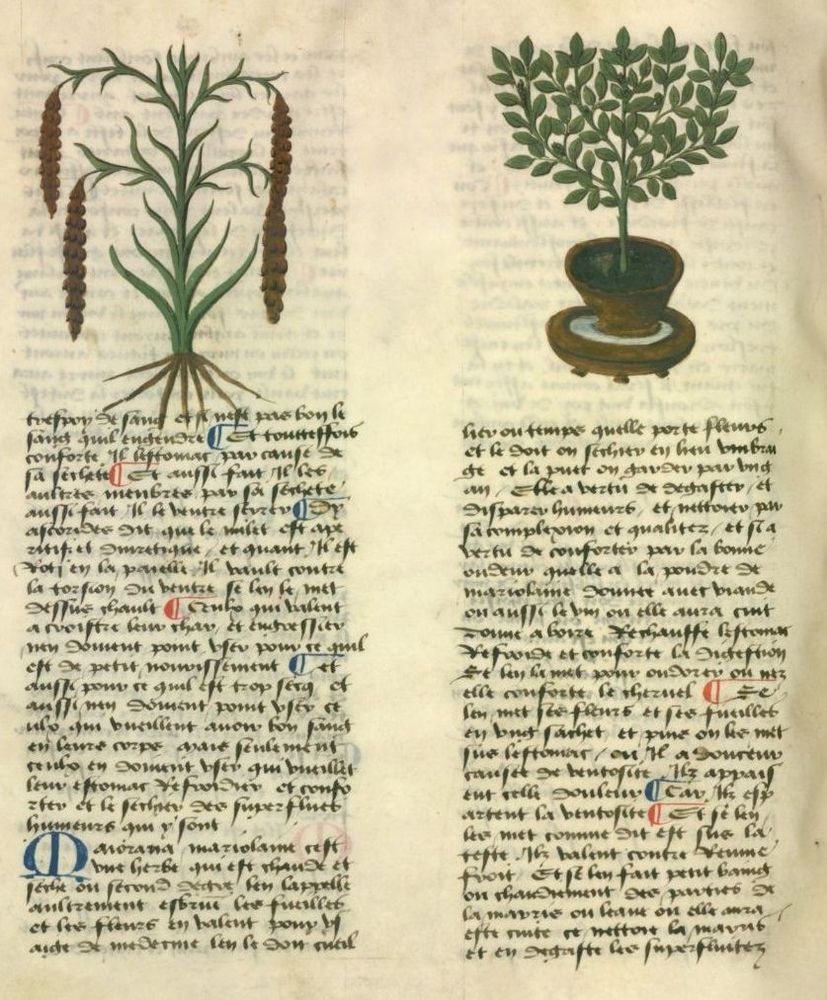 trespou de sang et si nest pas bon le
sang quil engendre ¶ Et touttesfois
conforte Il lestomac par cause de
sa secheté ¶ Et aussi fait Il les
aultres menbres par sa secheté
aussi fait Il le ventre serrer ¶ Dy
ascorides dit que le milet est ape
ritif et diuretique, et quant Il est
Roti en la paielle Il vault contre
la torsion du ventre se len le met
dessus chault ¶ Ceulx qui valent
a croistre leur char, et engressier
nen doiuent point vser pour ce quil
est de petit nourissement ¶ et
aussi pour ce quil est trop secq et
aussi nen doiuent point vser ce
ulx qui vueillent auoir bon sang
en leurs corps mais seulement
ceulx en doiuent vser qui vueillet
leur estomac Refroidier et confo
rter et le sechier des superflues
humeurs qui y sont
Maiorana mariolaine cest
vne herbe qui est chaude et
seche ou second degre len lappelle
aultrement esbrue les fueilles
et les fleurs en valent pour vs
aige de medecine len le doit cueil
lier ou temps quelle porte fleurs
et le doit on sechier en lieu vmbrai
ge et la puet on garder par vng
an, Elle a vertu de degaster, et
disparer humeurs, et nettoier par
sa complexion et qualitez, et si a
vertu de conforter par la bonne
oudeur quelle a la pouldre de
mariolaine donnee auec viande
ou aussi le vin ou elle aura cuit
donne a boire, Rechauffe lestomac
Refroide et conforte la digestion
Et len la met pour oudorer ou nez
elle conforte le cheruel ¶ Se
len met ses fleurs et ses fueilles
en vng sachet et puis on les met
sus lestomac, ou Il a douceur
causee de ventosite, Ilz appais
ent celle douleur ¶ Car, Ilz esp
artent la ventosite ¶ Et se len
les met comme dit est sus la
teste Ilz valent contre Reume
froit, Et se len fait petit baing
ou chaudiement des parties de
la marris ou leaue ou elle aura
este cuite ce nettoie la marris
et en degaste les superfluitez